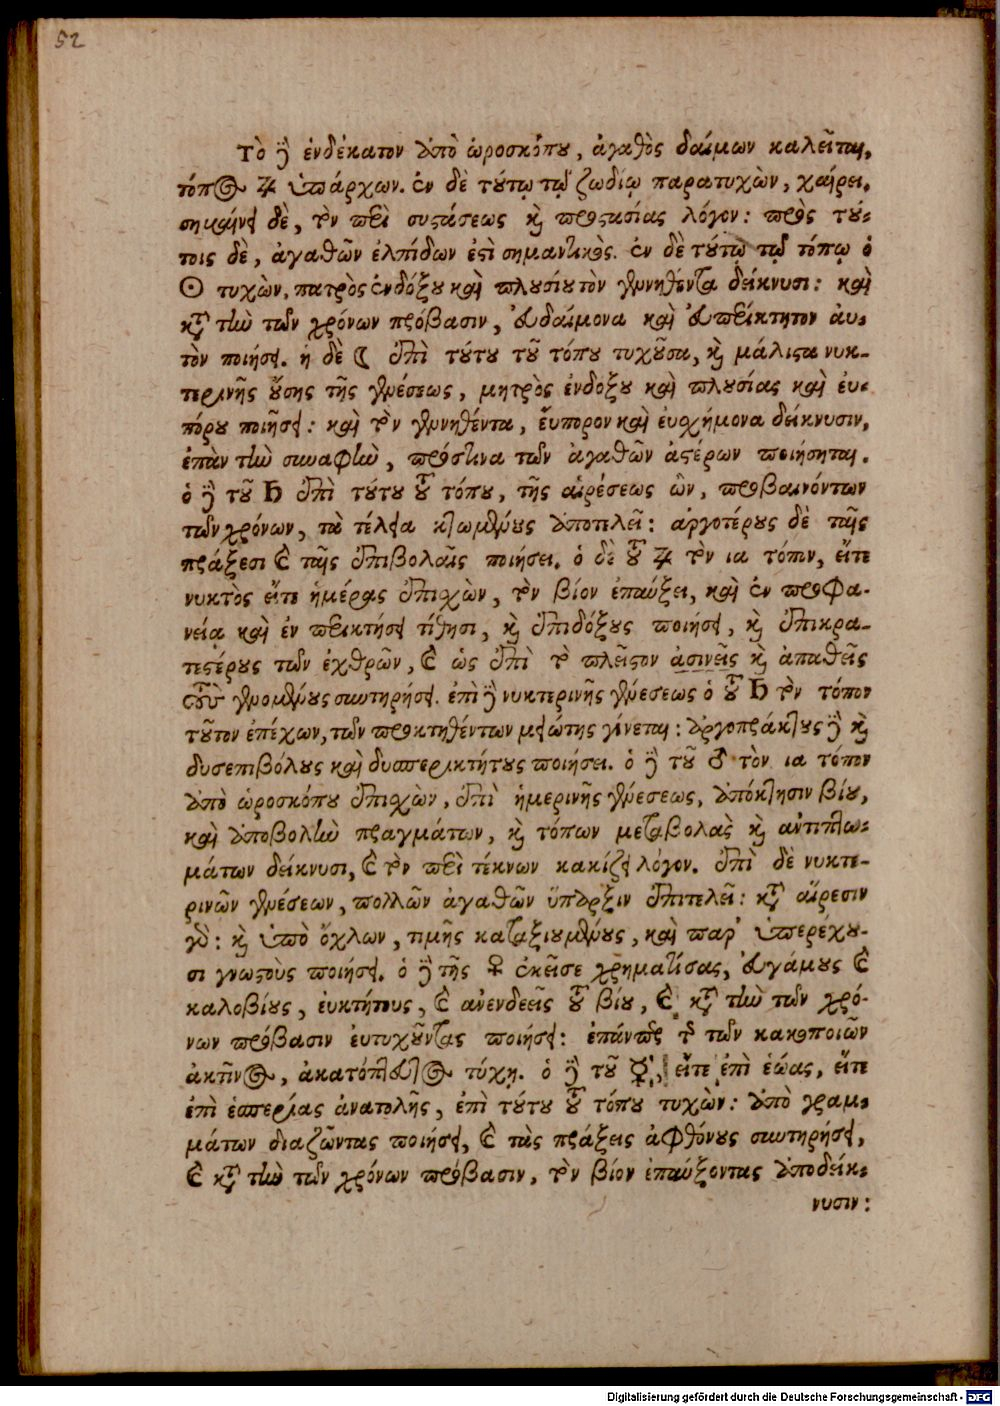 52
Τὸ δὲ ἑνδέκατον ἀπὸ ὡροσκόπου, ἀγαθὸς δαίμων καλεῖται,
τόπος ♃ ὑπάρχων. ἐν δὲ τούτῳ τῷ ζωδίῳ παρατυχὼν, χαίρει,
σημαίνει δὲ, τὸν περὶ συστάσεως καὶ προστασίας λόγον: πρὸς τού-
τοις δὲ, ἀγαθῶν ἐλπίδων ἐστὶ σημαντικὸς. ἐν δὲ τούτῳ τῷ τόπῳ ὁ
☉ τυχὼν, πατρὸς ἐνδόξου καὶ πλουσίου τὸν γεννηθέντα δείκνυσι: καὶ
κατὰ τὴν τῶν χρόνων πρόβασιν, εὐδαίμονα καὶ εὐπερίκτητον αὐ-
τὸν ποιήσει. ἡ δὲ ☾ ἐπὶ τούτου τοῦ τόπου τυχοῦσα, καὶ μάλιστα νυκ-
τερινῆς οὔσης τῆς γενέσεως, μητρὸς ἐνδόξου καὶ πλουσίας καὶ εὐ-
πόρου ποιήσει: καὶ τὸν γεννηθέντα, εὔπορον καὶ εὐσχήμονα δείκνυσιν,
ἐπὰν τὴν συναφὴν, πρός τινα τῶν ἀγαθῶν ἀστέρων ποιήσηται.
ὁ δὲ τοῦ ♄ ἐπὶ τούτου τοῦ τόπου, τῆς αἱρέσεως ὢν, προβαινόντων
τῶν χρόνων, τὰ τέλεια κτωμένους ἀποτελεῖ: ἀργοτέρους δὲ ταῖς
πράξεσι καὶ ταῖς ἐπιβολαῖς ποιήσει. ὁ δὲ τοῦ ♃ τὸν ια τόπον, εἴτε
νυκτὸς εἴτε ἡμέρας ἐπισχὼν, τὸν βίον ἐπαύξει, καὶ ἐν προφα-
νείᾳ καὶ ἐν περικτήσει τίθησι, καὶ ἐπιδόξους ποιήσει, καὶ ἐπικρα-
τεστέρους τῶν ἐχθρῶν, καὶ ὡς ἐπὶ τὸ πλεῖστον ἀσινεῖς καὶ ἀπαθεῖς
τοὺς γενομένους συντηρήσει. ἐπὶ δὲ νυκτερινῆς γενέσεως ὁ τοῦ ♄ τὸν τόπον
τοῦτον ἐπέχων, τῶν προκτηθέντων μειώτης γίνεται: ἀργοπράκτους δὲ καὶ
δυσεπιβόλους καὶ δυσπερικτήτους ποιήσει. ὁ δὲ τοῦ ♂ τὸν ια τόπον
ἀπὸ ὡροσκόπου ἐπισχὼν, ἐπὶ ἡμερινῆς γενέσεως, ἀπόκτησιν βίου,
καὶ ἀποβολὴν πραγμάτων, καὶ τόπων μεταβολὰς καὶ ἀντιπτω-
μάτων δείκνυσι, καὶ τὸν περὶ τέκνων κακίζει λόγον. ἐπὶ δὲ νυκτε-
ρινῶν γενέσεων, πολλῶν ἀγαθῶν ὕπαρξιν ἐπιτελεῖ: κατὰ αἵρεσιν
γὰρ: καὶ ὑπὸ ὄχλων, τιμῆς καταξιουμένους, καὶ παρ' ὑπερέχου-
σι γνωστοὺς ποιήσει. ὁ δὲ τῆς ♀ ἐκεῖσε χρηματίσας, εὐγάμους καὶ
καλοβίους, εὐκτήτους, καὶ ἀνενδεεῖς τοῦ βίου, καὶ κατὰ τὴν τῶν χρό-
νων πρόβασιν εὐτυχοῦντας ποιήσει: ἐπάντως τῆς τῶν κακοποιῶν
ἀκτῖνος, ἀκατόπτευτος τύχῃ. ὁ δὲ τοῦ ☿, εἴτε ἐπὶ ἑῴας, εἴτε
ἐπὶ ἑσπερίας ἀνατολῆς, ἐπὶ τούτου τοῦ τόπου τυχὼν: ἀπὸ γραμ-
μάτων διαζῶντας ποιήσει, καὶ τὰς πράξεις ἀφθόνους συντηρήσει,
καὶ κατὰ τὴν τῶν χρόνων πρόβασιν, τὸν βίον ἐπαύξοντας ἀποδείκ-
νυσιν:
Digitalisierung gefördert durch die Deutsche Forschungsgemeinschaft - DFG